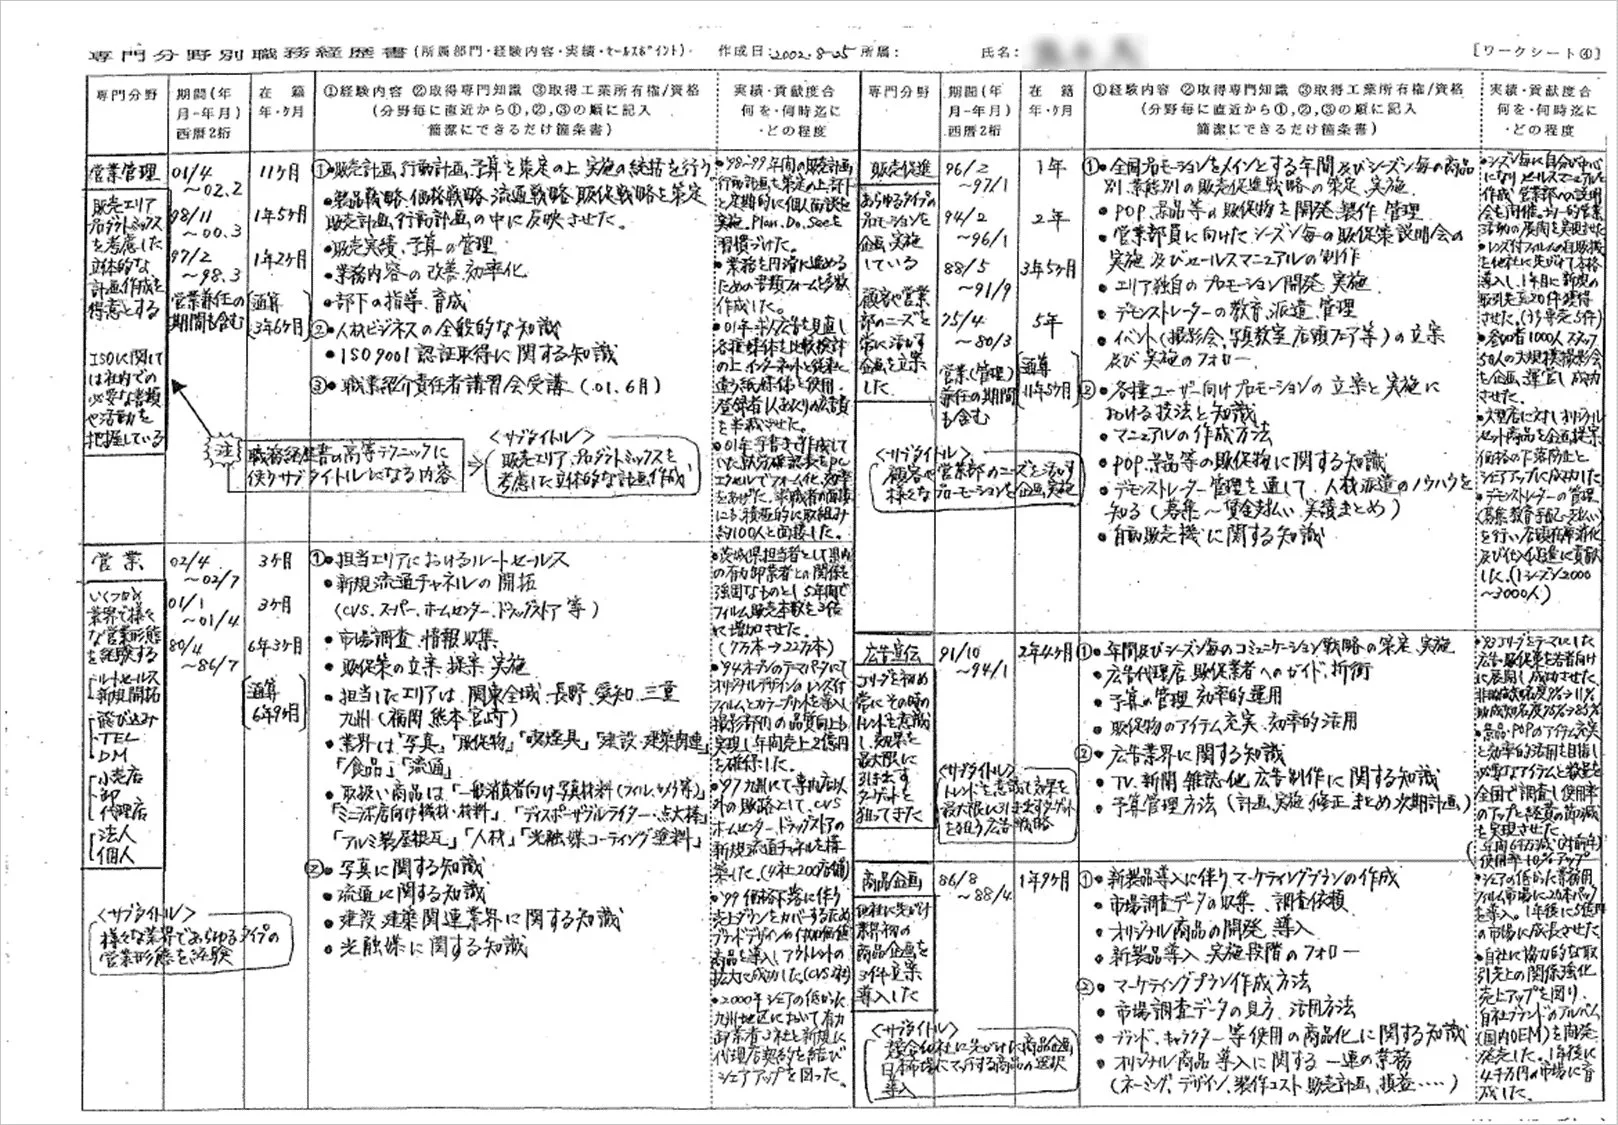 専門分野別職務経歴書(所属部門・経験内容・実績・セールスポイント)
作成日:2002.8-25 所属:
氏名:
[ワークシート④]
専門分野
期間(年月-年月)西暦2桁
在籍年・ヶ月
①経験内容 ②取得専門知識 ③取得工業所有権/資格
(分野毎に直近から①,②,③の順に記入
簡潔にできるだけ箇条書)
実績・貢献度合
何を・何時迄に
・どの程度
営業管理
販売エリア
プロダクトミックス
を考慮した
立体的な
計画作成を
得意とする
ISOに関して
は社内での
必要な書類
や活動を
把握している
01/4
~02.2
98/11
~00.3
97/2
~98.3
営業兼任の
期間も含む
11ヶ月
1年5ヶ月
1年2ヶ月
通算
3年6ヶ月
①・販売計画、行動計画、予算を策定の上、実施の統括を行う
・製品戦略、価格戦略、流通戦略、販促戦略を策定
販売計画、行動計画の中に反映させた。
・販売実績、予算の管理
・業務内容の改善、効率化
・部下の指導、育成
②・人材ビジネスの全般的な知識
・ISO9001認証取得に関する知識
③・職業紹介責任者講習会受講(.01.6月)
注
職務経歴書の高等テクニックに
使うサブタイトルになる内容
<サブタイトル>
販売エリア、プロダクトミックスを
考慮した立体的な計画作成
・'98~99年間の販売計画
行動計画を策定の上、部下
と定期的に個人面談を
実施。Plan.Do.Seeを
習慣づけた。
・業務を円滑に進める
ための書類フォームを多数
作成した。
・01年求人広告を見直し
各種媒体を比較検討
の上、インターネットと従来と
違う紙媒体を使用。
登録者1人あたりの広告費
を半減させた。
・01年手書きで作成して
いた就労確認表をPC
エクセルでフォーム化、効率
をあげた。求職者の面接
にも積極的に取組み
約100人と面接した。
営業
いくつかの
業界で様々
な営業形態
を経験する
ルートセールス
新規開拓
飛び込み
TEL
DM
小売店
卸
代理店
法人
個人
02/4
~02/7
01/1
~01/4
80/4
~86/7
3ヶ月
3ヶ月
6年3ヶ月
通算
6年9ヶ月
①・担当エリアにおけるルートセールス
・新規流通チャネルの開拓
(CVS.スーパー.ホームセンター.ドラッグストア等)
・市場調査、情報収集
・販促策の立案、提案、実施
・担当したエリアは、関東全域、長野、愛知、三重
九州(福岡、熊本、宮崎)
・業界は「写真」「販促物」「喫煙具」「建設・建築関連」
「食品」「流通」
・取扱い商品は「一般消費者向け写真材料(フィルム、カメラ等)」
「ミニラボ店向け機材・材料」「ディスポーザブルライター・点火棒」
「アルミ製屋根瓦」「人材」「光触媒コーティング塗料」
②・写真に関する知識
・流通に関する知識
・建設、建築関連業界に関する知識
・光触媒に関する知識
<サブタイトル>
様々な業界であらゆるタイプの
営業形態を経験
・茨城県担当者として県内
の有力卸業者との関係を
強固なものとし5年間で
フィルム販売本数を3倍
に増加させた。
(7万本→22万本)
・'94オープンのテーマパークにて
オリジナルデザインのレンズ付
フィルムとカラープリントを導入
撮影等の品質向上も
実現し年間売上2億円
を確保した。
・'97九州にて専門店以
外の販路として、CVS
ホームセンター、ドラッグストアの
新規流通チャネルを構
築した。(4社200店舗)
・'99価格下落に伴う
売上ダウンをカバーするため
ブランドデザインの付加価値
商品を導入しアウトレットの
拡大に成功した。(CVS2社)
・2000年シェアの低かった
九州地区において有力
卸業者3社と新規に
代理店契約を結び
シェアアップを図った。
専門分野
期間(年月-年月)西暦2桁
在籍年・ヶ月
①経験内容 ②取得専門知識 ③取得工業所有権/資格
(分野毎に直近から①,②,③の順に記入
簡潔にできるだけ箇条書)
実績・貢献度合
何を・何時迄に
・どの程度
販売促進
あらゆるタイプの
プロモーションを
企画、実施
している
顧客や営業
部のニーズを
常に活かす
企画を立案
した
96/2
~97/1
94/2
~96/1
88/5
~91/9
75/4
~80/3
営業(管理)
兼任の期間
も含む
1年
2年
3年5ヶ月
5年
通算
11年5ヶ月
①・全国プロモーションをメインとする年間及びシーズン毎の商品
別、業態別の販売促進戦略への策定、実施
・POP、景品等の販促物を開発、製作、管理
・営業部員に向けたシーズン毎の販促策説明会の
実施及びセールスマニュアルの制作
・エリア独自のプロモーション開発、実施
・デモンストレーターの教育、派遣、管理
・イベント(撮影会、写真教室、店頭フェア等)の立案
及び実施のフォロー
②・各種ユーザー向けプロモーションの立案と実施に
おける技法と知識
・マニュアルの作成方法
・POP、景品等の販促物に関する知識
・デモンストレーター管理を通して、人材派遣のノウハウを
知る(募集~賃金支払い、実績まとめ)
・自動販売機に関する知識
<サブタイトル>
顧客や営業部のニーズを活かす
様々なプロモーションを企画、実施
・シーズン毎に自分が中心
になりセールスマニュアルを
作成、営業部への説明
会を開催。統一的営業
活動の展開を実現させた
・レンズ付フィルムの自販機
を他社に先がけて本格
導入し、1年目に新規の
取引先を20件獲得
させた。(うち専売5件)
・参加者1000人、スタッフ
50人の大規模撮影会
を企画、運営し成功
させた。
・大型店に対しオリジナル
セット商品を企画、提案
価格の下落防止と
シェアアップに成功した。
・デモンストレーターの管理
(募集、教育、手配、支払い)
を行い店頭活性化
及び仕入促進に貢献
した。(1シーズン2000
~3000人)
広告宣伝
ゴリラを初め
常にその時の
トレンドを意識
し、効果を
最大限に
引き出す
ターゲットを
狙ってきた
91/10
~94/1
2年4ヶ月
①・年間及びシーズン毎のコミュニケーション戦略の策定、実施
・広告代理店、販促業者へのガイド、折衝
・予算の管理、効率的運用
・販促物のアイテム充実、効率的活用
②・広告業界に関する知識
・TV、新聞、雑誌、他、広告制作に関する知識
・予算管理方法(計画、実施、修正、まとめ、次期計画)
<サブタイトル>
トレンドを意識して効果を
最大限に引き出すターゲット
を狙う広告戦略
・'93Jリーグをテーマにした
広告・販促策を若者向け
に展開し成功させた。
非助成知名度9%→11%
助成知名度76%→85%
・景品、POPのアイテム充実
と効率的活用を目指し
必要なアイテムと数量を
全国で調査し使用率
のアップと経費の節減
を実現させた。
(年間6千万減(対前年)
使用率10%アップ
商品企画
他社に先がけ
業界初の
商品企画を
3件立案
導入した
86/8
~88/4
1年9ヶ月
①・新製品導入に伴うマーケティングプランの作成
・市場調査データの収集、調査依頼
・オリジナル商品の開発、導入
・新製品導入、実施段階のフォロー
②・マーケティングプラン作成方法
・市場調査データの見方、活用方法
・ブランド、キャラクター等使用の商品化に関する知識
・オリジナル商品導入に関する一連の業務
(ネーミング、デザイン、製作コスト、販売計画、損益‥‥)
<サブタイトル>
競合他社に先がけた商品企画
日本市場にマッチする商品の選択
導入
・シェアの低かった業務用
フィルム市場に20本パック
を導入。1年後に5億円
の市場に成長させた
・自社に協力的な取
引先との関係強化
売上アップを図り、
自社ブランドのアルバム
(国内OEM)を開発
発売した。1年後に
4千万円の市場に育
成した。